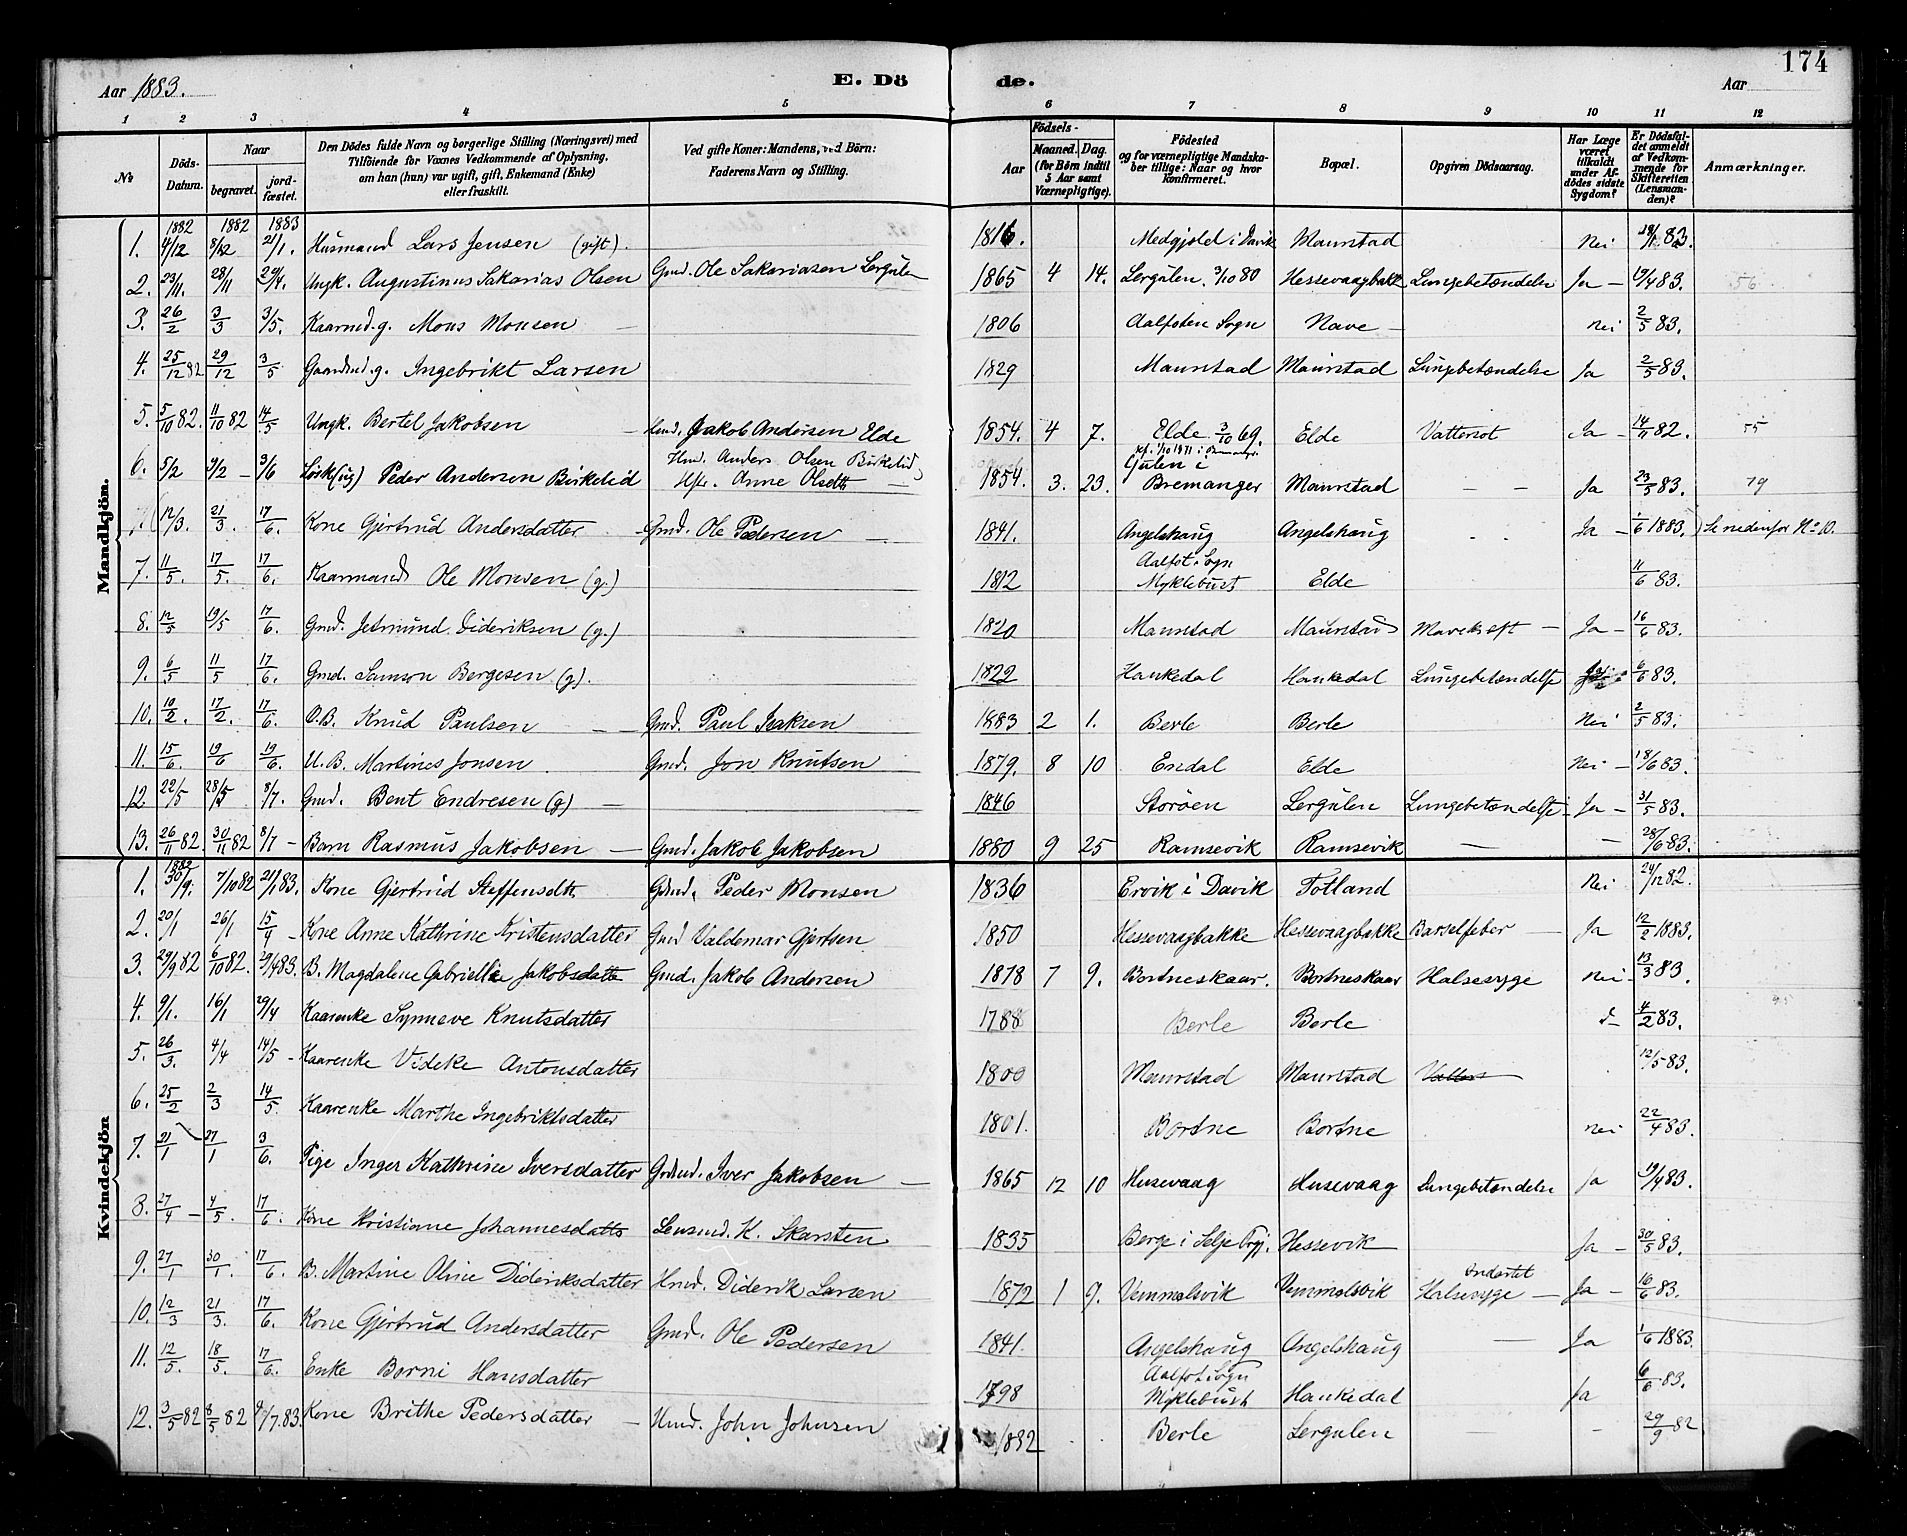 174
Aar 1883. E. Dö de. Aar
1 2 3 4 5 6 7 8 9 10 11 12
No Döds-Datum. Naar begravet. jordfæstet. Den Dödes fulde Navn og borgerlige Stilling (Næringsvei) med Tilföiende for Voxnes Vedkommende af Oplysning, om han (hun) var ugift, gift, Enkemand (Enke) eller fraskilt. Ved gifte Koner: Mandens, ved Börn: Faderens Navn og Stilling. Födsels- Aar Maaned. Dag. (for Börn indtil 5 Aar samt Værnepligtige). Födested og for værnepligtige Mandskaber tillige: Naar og hvor Konfirmeret. Bopæl. Opgiven Dödsaarsag. Har Læge været tilkaldt under Afdödes sidste Sygdom? Er Dödsfaldet anmeldt af Vedkommende for Skifteretten (Lensmanden)? Anmærkninger.
Mandkjön.
1882 1882 1883
1. 4/12 8/12 21/1. Husmand Lars Jensen (gift). 1816. Medgjeld i Davik Maurstad Nei 83.
2. 23/11. 28/11 29/4. Ungk. Augustinus Sakarias Olsen Gmd. Ole Sakariasen Lergulen 1865 4 14. Lergulen. 3/10 80 Hessevaagbakk Lungebetændelse Ja 19/4 83. 56
3. 26/2 3/3 3/5. Kaarmd. g. Mons Monsen 1806 Aalfoten Sogn Nave Nei 2/5 83.
4. 25/12 82 29/12 3/5 Gaardmd. g. Ingebrikt Larsen 1829 Maurstad Maurstad Lungebetændelse Ja 2/5 83.
5. 5/10 82. 11/10 82 14/5 Ungk. Bertel Jakobsen Hmd. Jakob Andersen Elde 1854. 4 7. Elde. 3/10 69. Elde Vattersot Ja 14/11 82. 55
6. 5/2 9/2 3/6 Løsk(ug) Peder Andersen Birkelid Hmd. Anders Olsen Birkelid Hfr. Anne Olsdtr 1854. 3. 23. Gulen i Bremanger Maurstad Ja 23/5 83. 79
7. 12/3. 21/3. 17/6. Kone Gjertrud Andersdatter Gmd. Ole Pedersen 1841. Angelshaug Angelshaug Ja 1/6 1883. Se nedenfor No 10.
7. 11/5. 17/5. 17/6. Kaarmand Ole Monsen (g.) 1812 Aalfot. Sogn Myklebust Elde 11/6 83.
8. 12/5 19/5 17/6. Gmd. Jetmund Dideriksen (g.) 1820 Maurstad Maurstad Mavekræft Ja 16/6 83.
9. 6/5 11/5 17/6. Gmd. Samson Bergesen (g). 1822 Haukedal Haukedal Lungebetændelse 6/6 83.
10. 10/2. 17/2. 17/6. U.B. Knud Paulsen Gmd. Paul Isaksen 1883 2 1. Berle Berle Nei 2/5 83.
11. 15/6. 19/6 19/6. U.B. Martines Jonsen Gmd. Jon Knutsen 1879. 8 10 Endal Elde Nei 18/6 83.
12 22/5 28/5 8/7. Gmd. Bent Endresen (g) 1846 Storøen Lergulen Lungebetændelse Ja 31/5 83.
13. 26/11 82 30/11 82 8/7 Barn Rasmus Jakobsen Gmd. Jakob Jakobsen 1880 9 25 Ramsevik Ramsevik 28/6 83.
Kvindekjön
1. 1882 30/9. 7/10 82 21/1 83. Kone Gjertrud Steffensdtr Gmd. Peder Monsen 1836 Ervik i Davik Totland Nei 24/12 82.
2. 20/1 26/1 15/4 Kone Anne Kathrine Kristensdatter Gmd Valdemar Gjertsen 1850 Hessevaagbakke Hessevaagbakke Barselfeber Ja 12/2 1883.
3. 29/9 82 6/10 82. 29/4 83. B. Magdalene Gabrielle Jakobsdatte Gmd. Jakob Andersen 1878 7 9. Bortneskaar. Bortneskaar Halsesyge Nei 13/3 83.
4. 9/1. 16/1 29/4 Kaarenke Synneve Knutsdatter 1788 Berle Berle 4/2 83.
5. 26/3. 4/4 14/5 Kaarenke Videke Antonsdatter 1800 Maurstad Maurstad 12/5 83.
6. 25/2 2/3 14/5 Kaarenke Marthe Ingebriktsdatter 1801. Bortne Bortne Nei 22/4 83.
7. 21/1 27/1 3/6. Pige Inger Kathrine Iversdatter Grdmd. Iver Jakobsen 1865 12 10 Husevaag Husevaag Lungebetændelse Ja 19/4 83.
8. 27/4 4/5. 17/6. Kone Kristiane Johannesdatte Lensmd. K. Skarsten 1835 Berge i Selje Prgj. Hessevik Ja 30/5 83.
9. 27/1 30/1. 17/6. B. Martine Oline Dideriksdatter Hmd. Diderik Larsen 1872 1 9. Vemmelsvik Vemmelsvik Ondartet Halsesyge Ja 16/6 83.
10. 12/3 21/3. 17/6. Kone Gjertrud Andersdatter Gmd. Ole Pedersen 1841. Angelshaug Angelshaug Ja 1/6 1883.
11. 12/5. 18/5. 17/6. Enke Børni Hansdatter 1798 Aalfot. Sogn Myklebust Haukedal Ja 6/6 83.
12. 3/5 82 8/5 82 9/7. 83. Kone Brithe Pedersdatter Hmd. John Johnsen 1832 Berle Lergulen 29/9 82